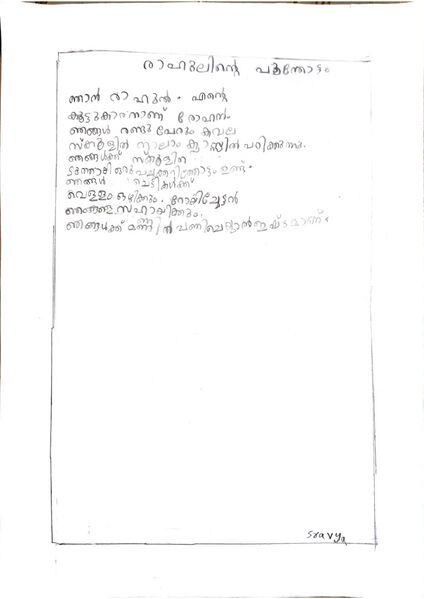 രാഹുലിന്റെ പൂന്തോട്ടം
ഞാൻ രാഹുൽ. എന്റെ
കൂട്ടുകാരനാണ് രോഹൻ.
ഞങ്ങൾ രണ്ടു പേരും കവല
സ്കൂളിൽ നാലാം ക്ലാസ്സിൽ പഠിക്കുന്നു.
ഞങ്ങൾക്ക് സ്കൂളിനു
ടുത്തായി ഒരു പച്ചക്കറിത്തോട്ടം ഉണ്ട്.
ഞങ്ങൾ ചെടികൾക്ക്
വെള്ളം ഒഴിക്കും. റോയിച്ചേട്ടൻ
ഞങ്ങളെ സഹായിക്കും.
ഞങ്ങൾക്ക് മണ്ണിൽ പണിചെയ്യാൻ ഇഷ്ടമാണ്.
Sravya